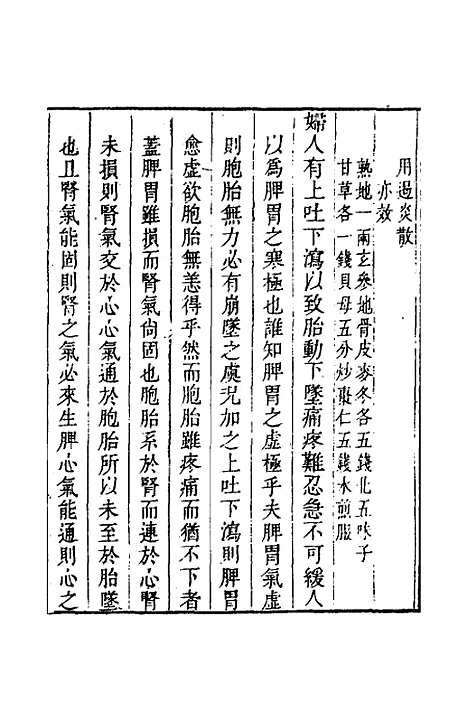 用遏炎散
亦效
熟地一兩玄參地骨皮麥冬各五錢北五味子
甘草各一錢貝母五分炒棗仁五錢水煎服
婦人有上吐下瀉以致胎動下墜痛疼難忍急不可緩人
以爲脾胃之寒極也誰知脾胃之虛極乎夫脾胃氣虛
則胞胎無力必有崩墜之虞况加之上吐下瀉則脾胃
愈虛欲胞胎無恙得乎然而胞胎雖疼痛而猶不下者
蓋脾胃雖損而腎氣尙固也胞胎系於腎而連於心腎
未損則腎氣交於心心氣通於胞胎所以未至於胎墜
也且腎氣能固則腎之氣必來生脾心氣能通則心之